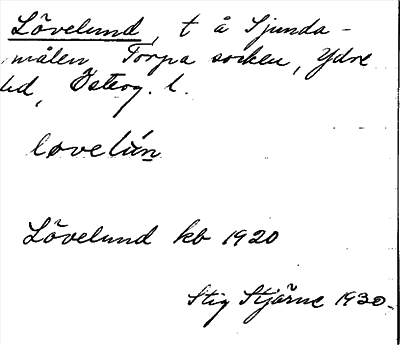 Lövelund, t å Sjunda-
målen Torpa socken, Ydre
hd, Österg. l.
løvelún
Lövelund kb 1920
Stig Stjärne 1930.